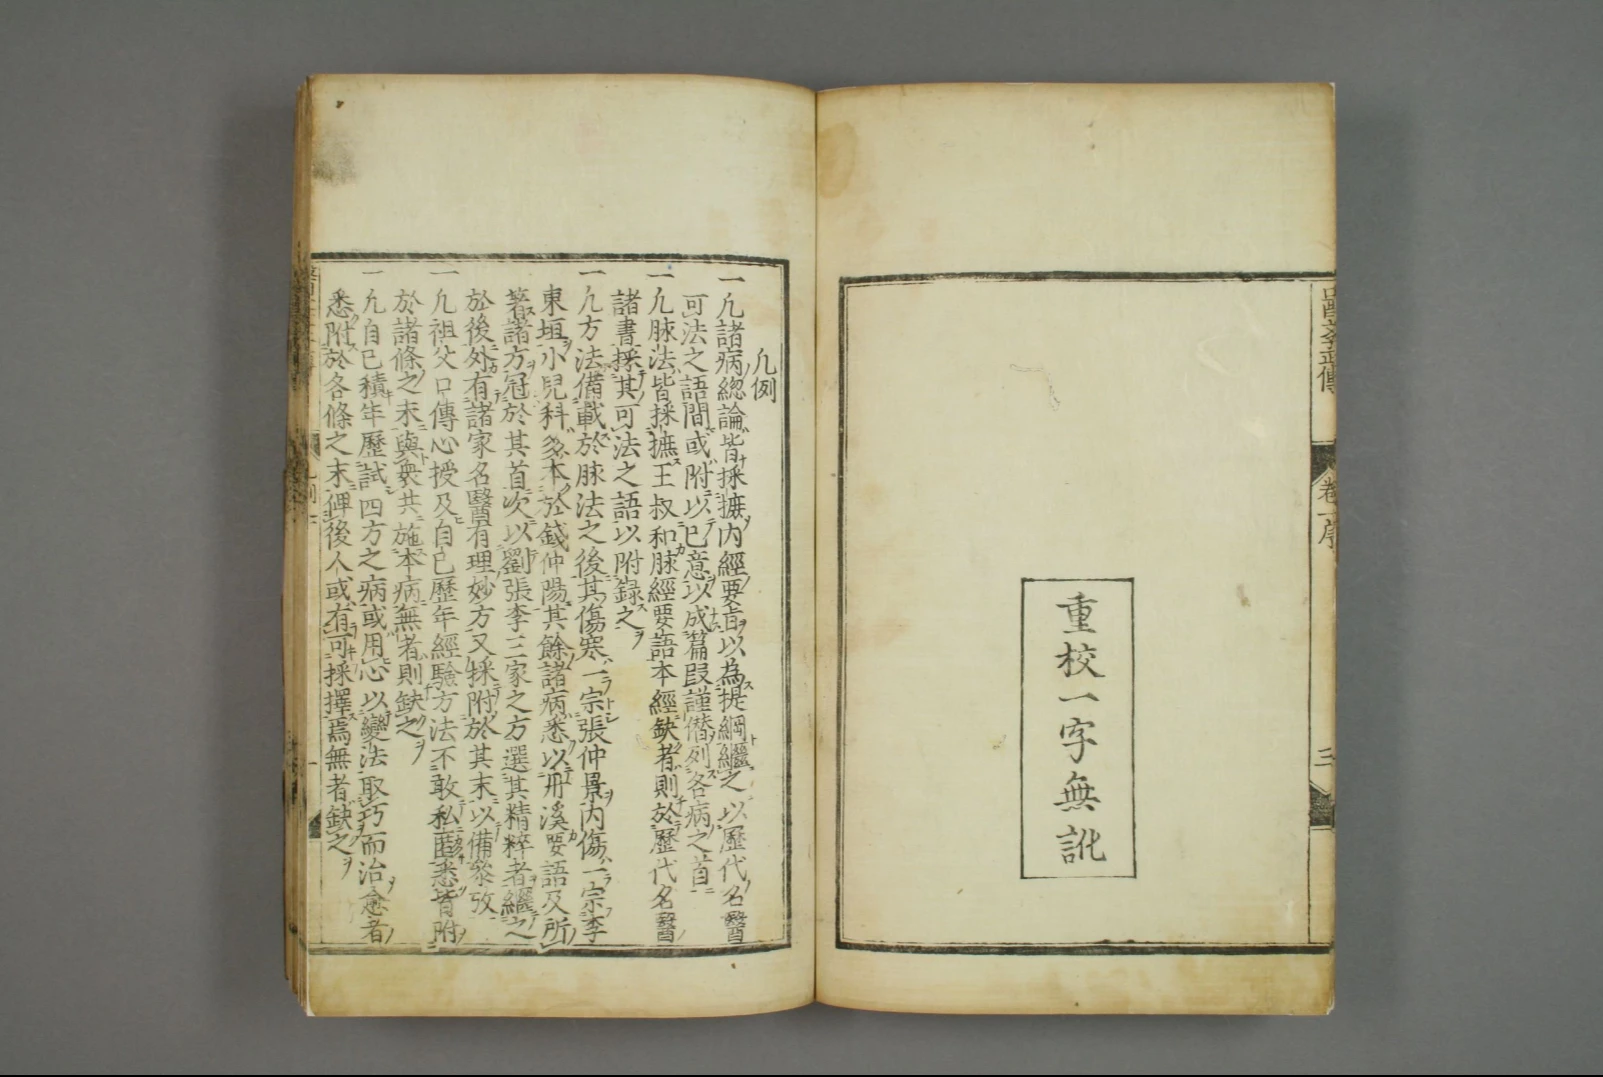 重校一字無訛
卷一序
三
凡例
一凡諸病緫論皆採摭内經要旨以為提綱繼之以歷代名醫
可法之語間或附以已意以成篇段謹僣列各病之首
一凡脉法皆採摭王叔和脉經要語本經缺者則於歷代名醫
諸書採其可法之語以附錄之
一凡方法備載於脉法之後其傷寒一宗張仲景内傷一宗李
東垣小兒科多本於錢仲陽其餘諸病悉以丹溪要語及所
著諸方冠於其首次以劉張李三家之方選其精粹者繼之
於後外有諸家名醫有理妙方又採附於其末以備叅攷
一凡祖父口傳心授及自巳歷年經驗方法不敢私匿悉皆附
於諸條之末與衆共施本病無者則缺之
一凡自巳積年歷試四方之病或用心以變法取巧而治愈者
悉附於各條之末俾後人或有可採擇焉無者缺之